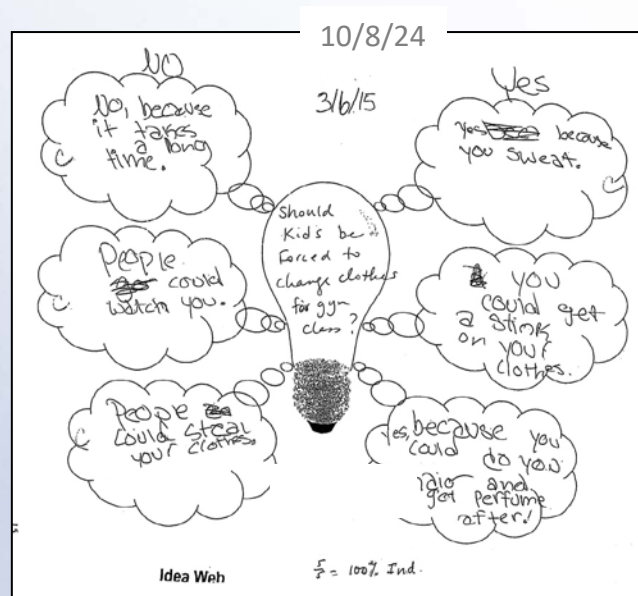 10/8/24
NO
3/6/15
Yes
No, because
it takes
a long
time.
yes because
you sweat.
Should
Kids be
Forced to
change clothes
for gym
class?
People
could
watch you.
you
could get
a stink
on your
clothes.
People
could steal
your clothes.
yes, because you
could do you
and
get perfume
after!
Idea Web
5/5 = 100% Ind.